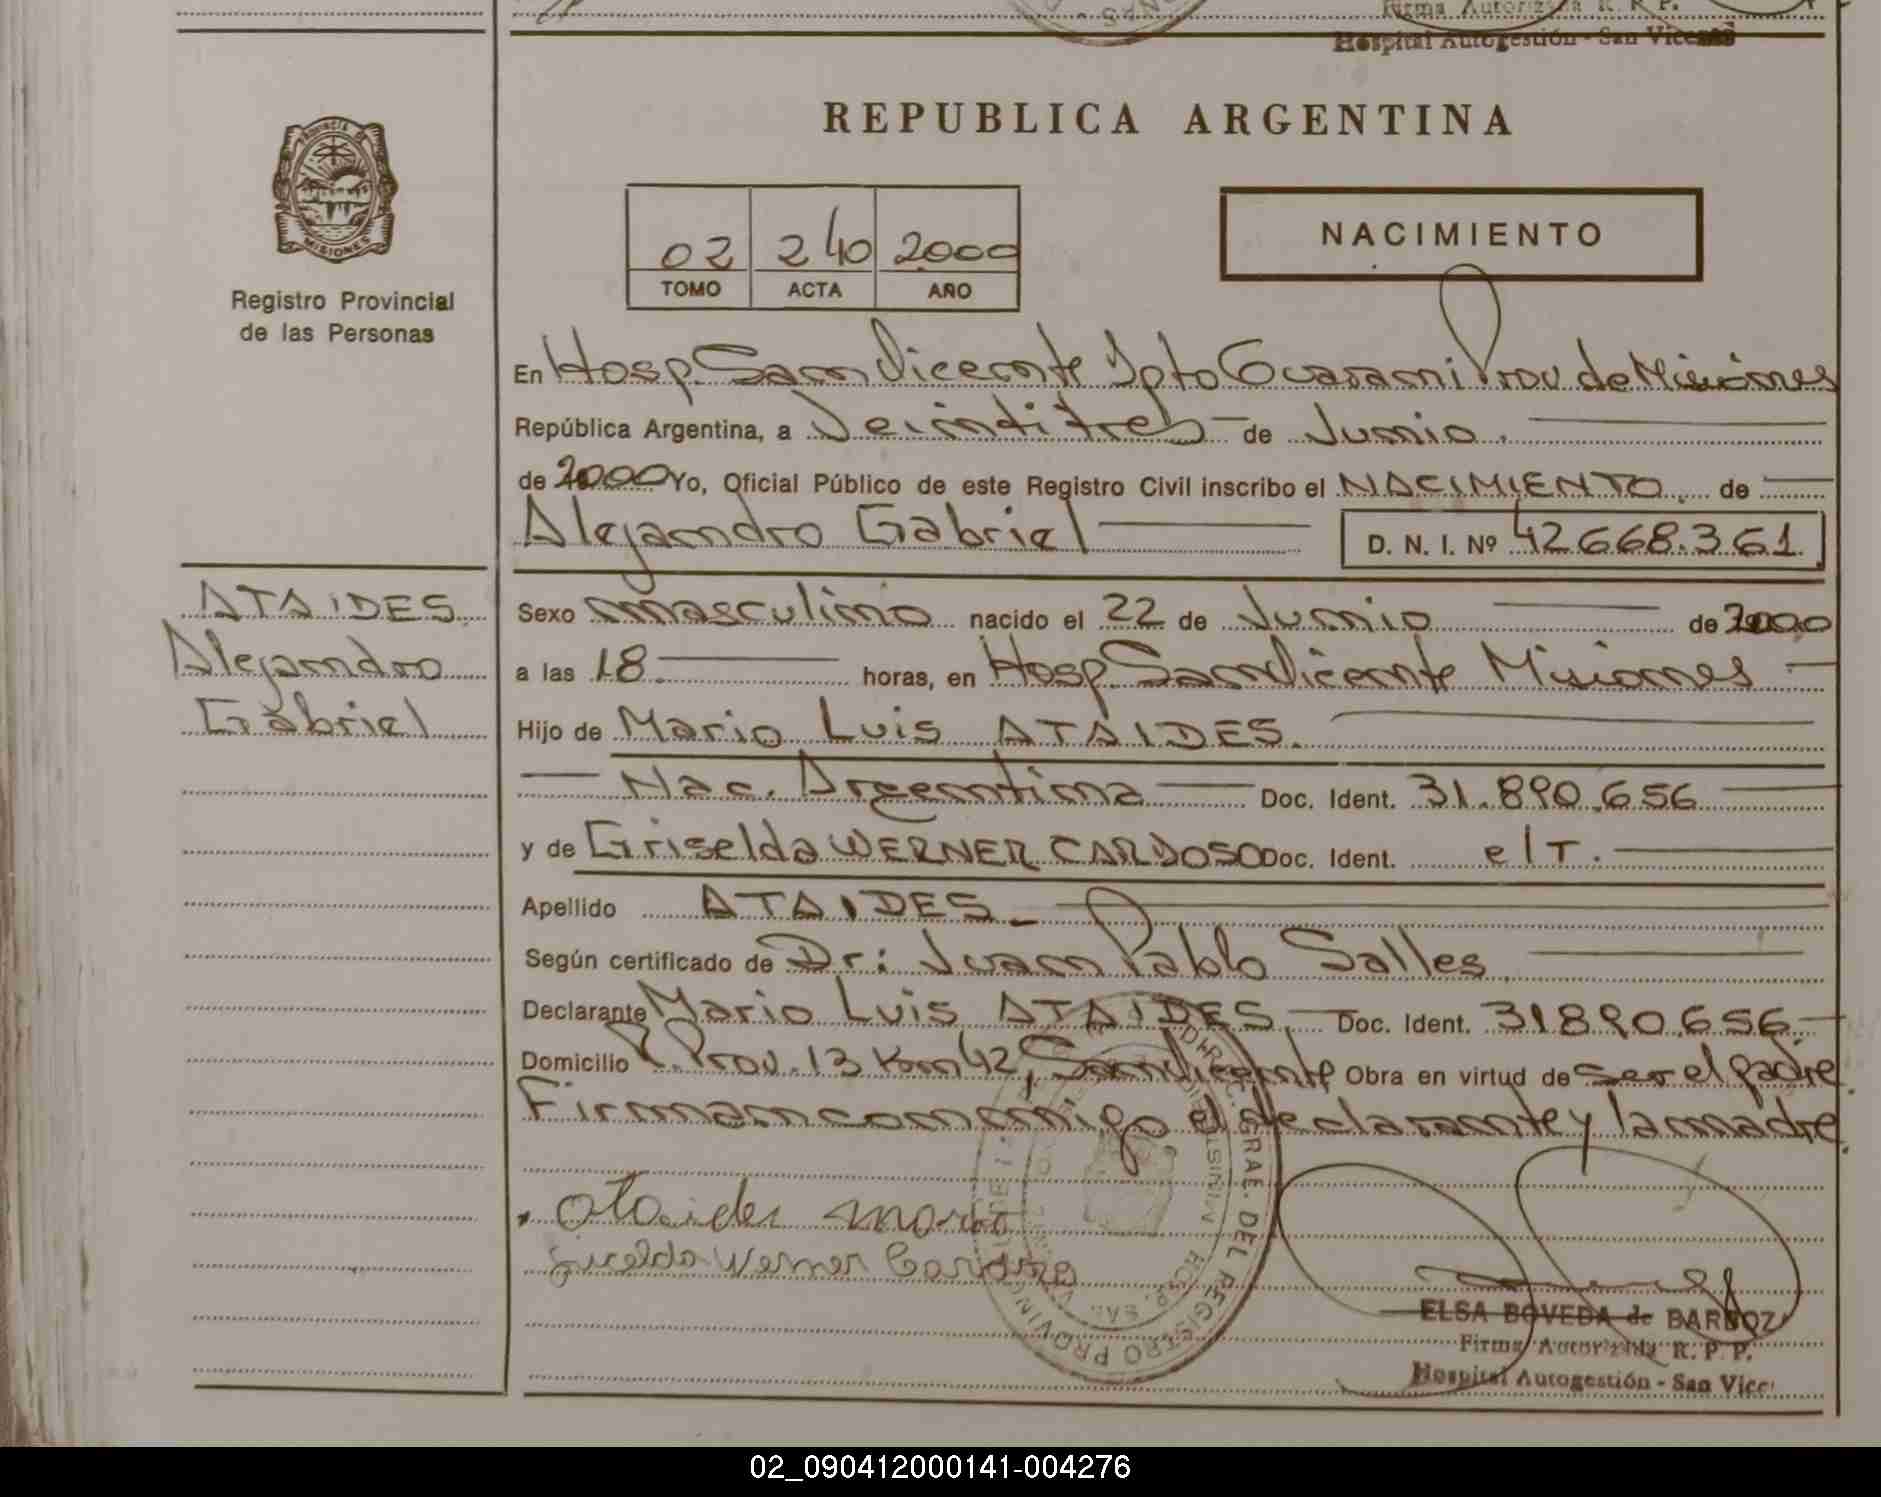 Firma Autorizada R. P. P.
Hospital Autogestión - San Vicente
REPUBLICA ARGENTINA
PROVINCIA DE
MISIONES
Registro Provincial
de las Personas
02 240 2000
TOMO ACTA AÑO
NACIMIENTO
En Hosp. San Vicente Dpto Guarani Prov de Misiones
República Argentina, a Veintitres de Junio.
de 2000 Yo, Oficial Público de este Registro Civil inscribo el NACIMIENTO. de
Alejandro Gabriel D. N. I. Nº 42668.361.
ATAIDES
Alejandro
Gabriel
Sexo masculino nacido el 22 de Junio de 2000
a las 18. horas, en Hosp. San Vicente Misiones
Hijo de Mario Luis ATAIDES.
Nac. Argentina Doc. Ident. 31.890.656
y de Griselda WERNER CARDOSO Doc. Ident. e/T.
Apellido ATAIDES
Según certificado de Dr: Juan Pablo Salles
Declarante Mario Luis ATAIDES, Doc. Ident. 31890.656
Domicilio R. Prov. 13 Km 42, San Vicente Obra en virtud de ser el padre.
Firman conmigo el declarante y la madre.
Ataides Mario
Griselda Werner Cardozo
ELSA BOVEDA de BARBOZA
Firma Autorizada R. P. P.
Hospital Autogestión - San Vice
02_090412000141-004276